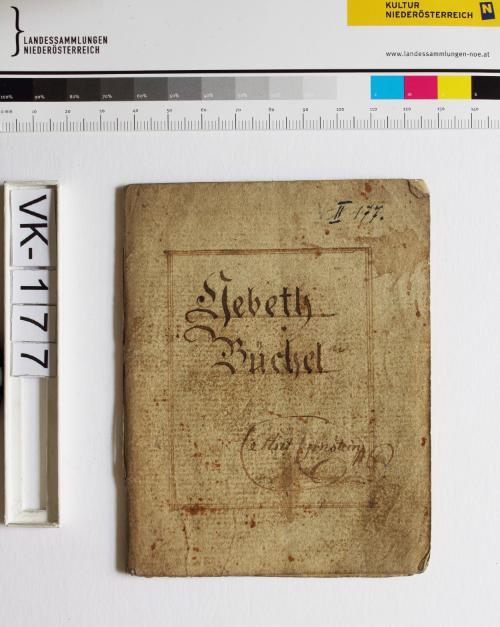 LANDESSAMMLUNGEN
NIEDERÖSTERREICH
KULTUR
NIEDERÖSTERREICH
N
www.landessammlungen-noe.at
VK-177
II 177.
Gebeth
Büchel